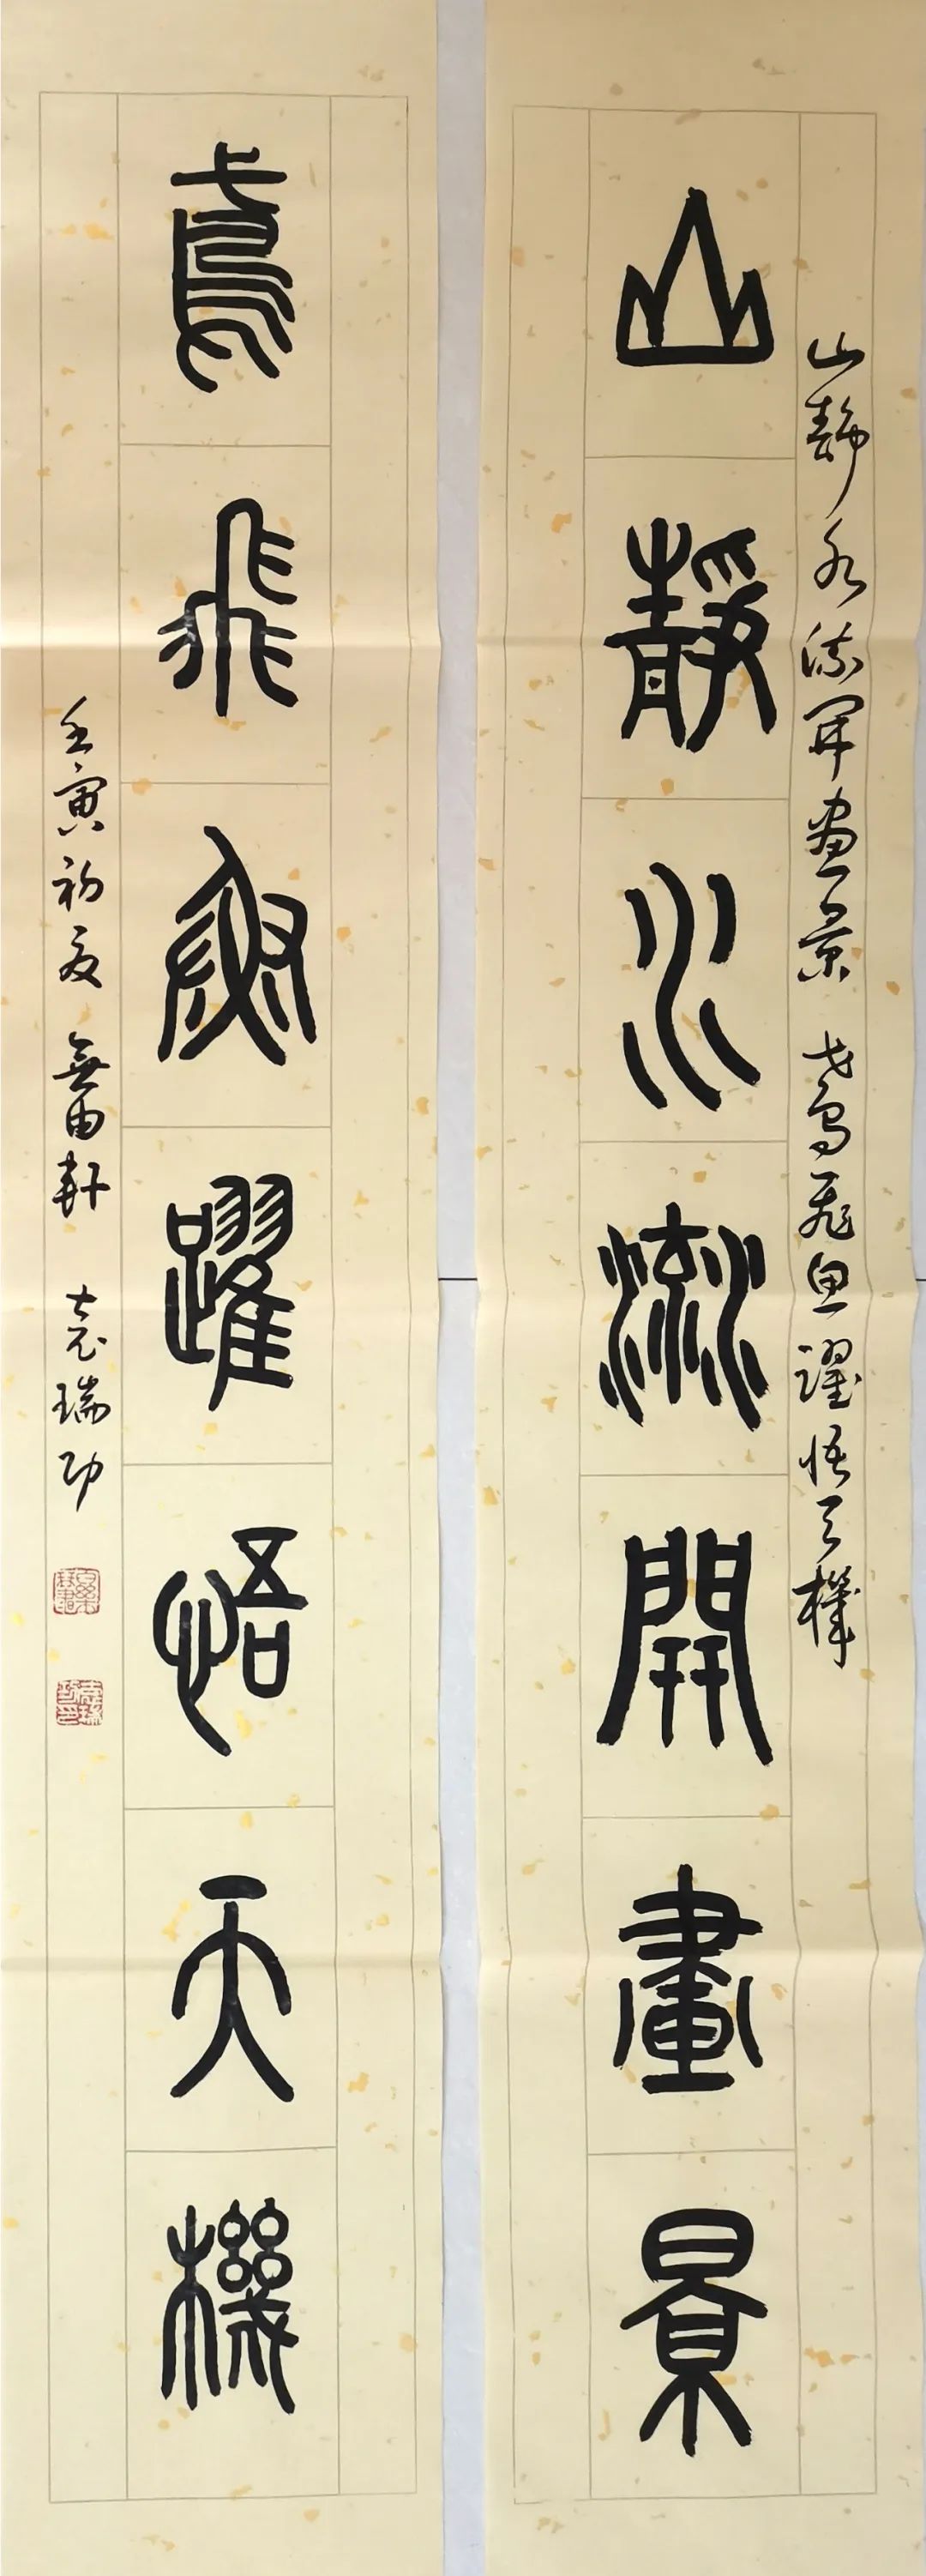 山靜水流開畫景
山静水流开画景 鸢飞鱼躍悟天機
鳶飛魚躍悟天機
壬寅初夏 無由軒 袁瑞功